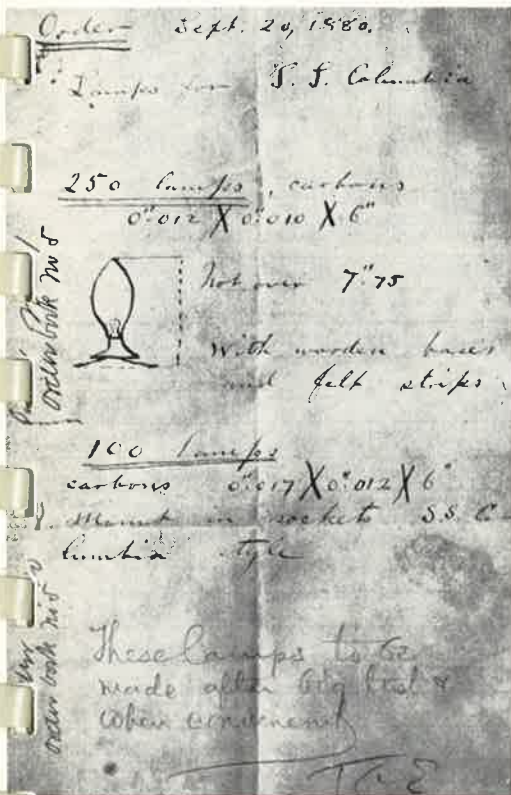 Order Sept. 20, 1880.
Lamps for S. S. Columbia
250 lamps, carbons
0".012 X 0".010 X 6"
Not over 7".75
With wooden bases
and felt strips
100 lamps
carbons 0".017 X 0".012 X 6"
Mount in sockets S.S. Co
lumbia style
These lamps to be
made after big test &
when convenient
T A E
order book no 5
order book no 5